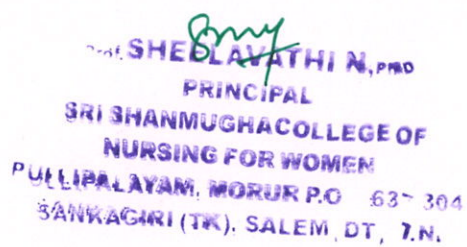 SHEELAVATHI N, PHD
PRINCIPAL
SRI SHANMUGHACOLLEGE OF
NURSING FOR WOMEN
PULLIPALAYAM, MORUR P.O 637 304
SANKAGIRI (TK), SALEM DT, T.N.